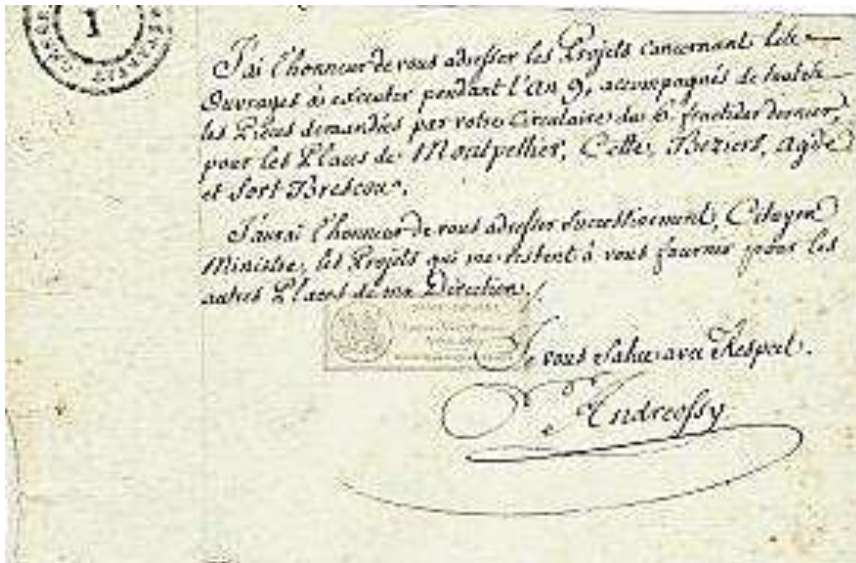 1
J'ai l'honneur de vous adresser les Projets concernant les
Ouvrages à exécuter pendant l'an 9, accompagnés de toutes
les Pièces demandées par votre Circulaire du 6 fructidor dernier,
pour les Places de Montpellier, Cette, Beziers, Agde
et fort Brescou.
J'aurai l'honneur de vous adresser successivement, Citoyen
Ministre, les Projets qui me restent à vous fournir pour les
autres Places de ma Direction.
Je vous Salue avec Respect.
Andreossy